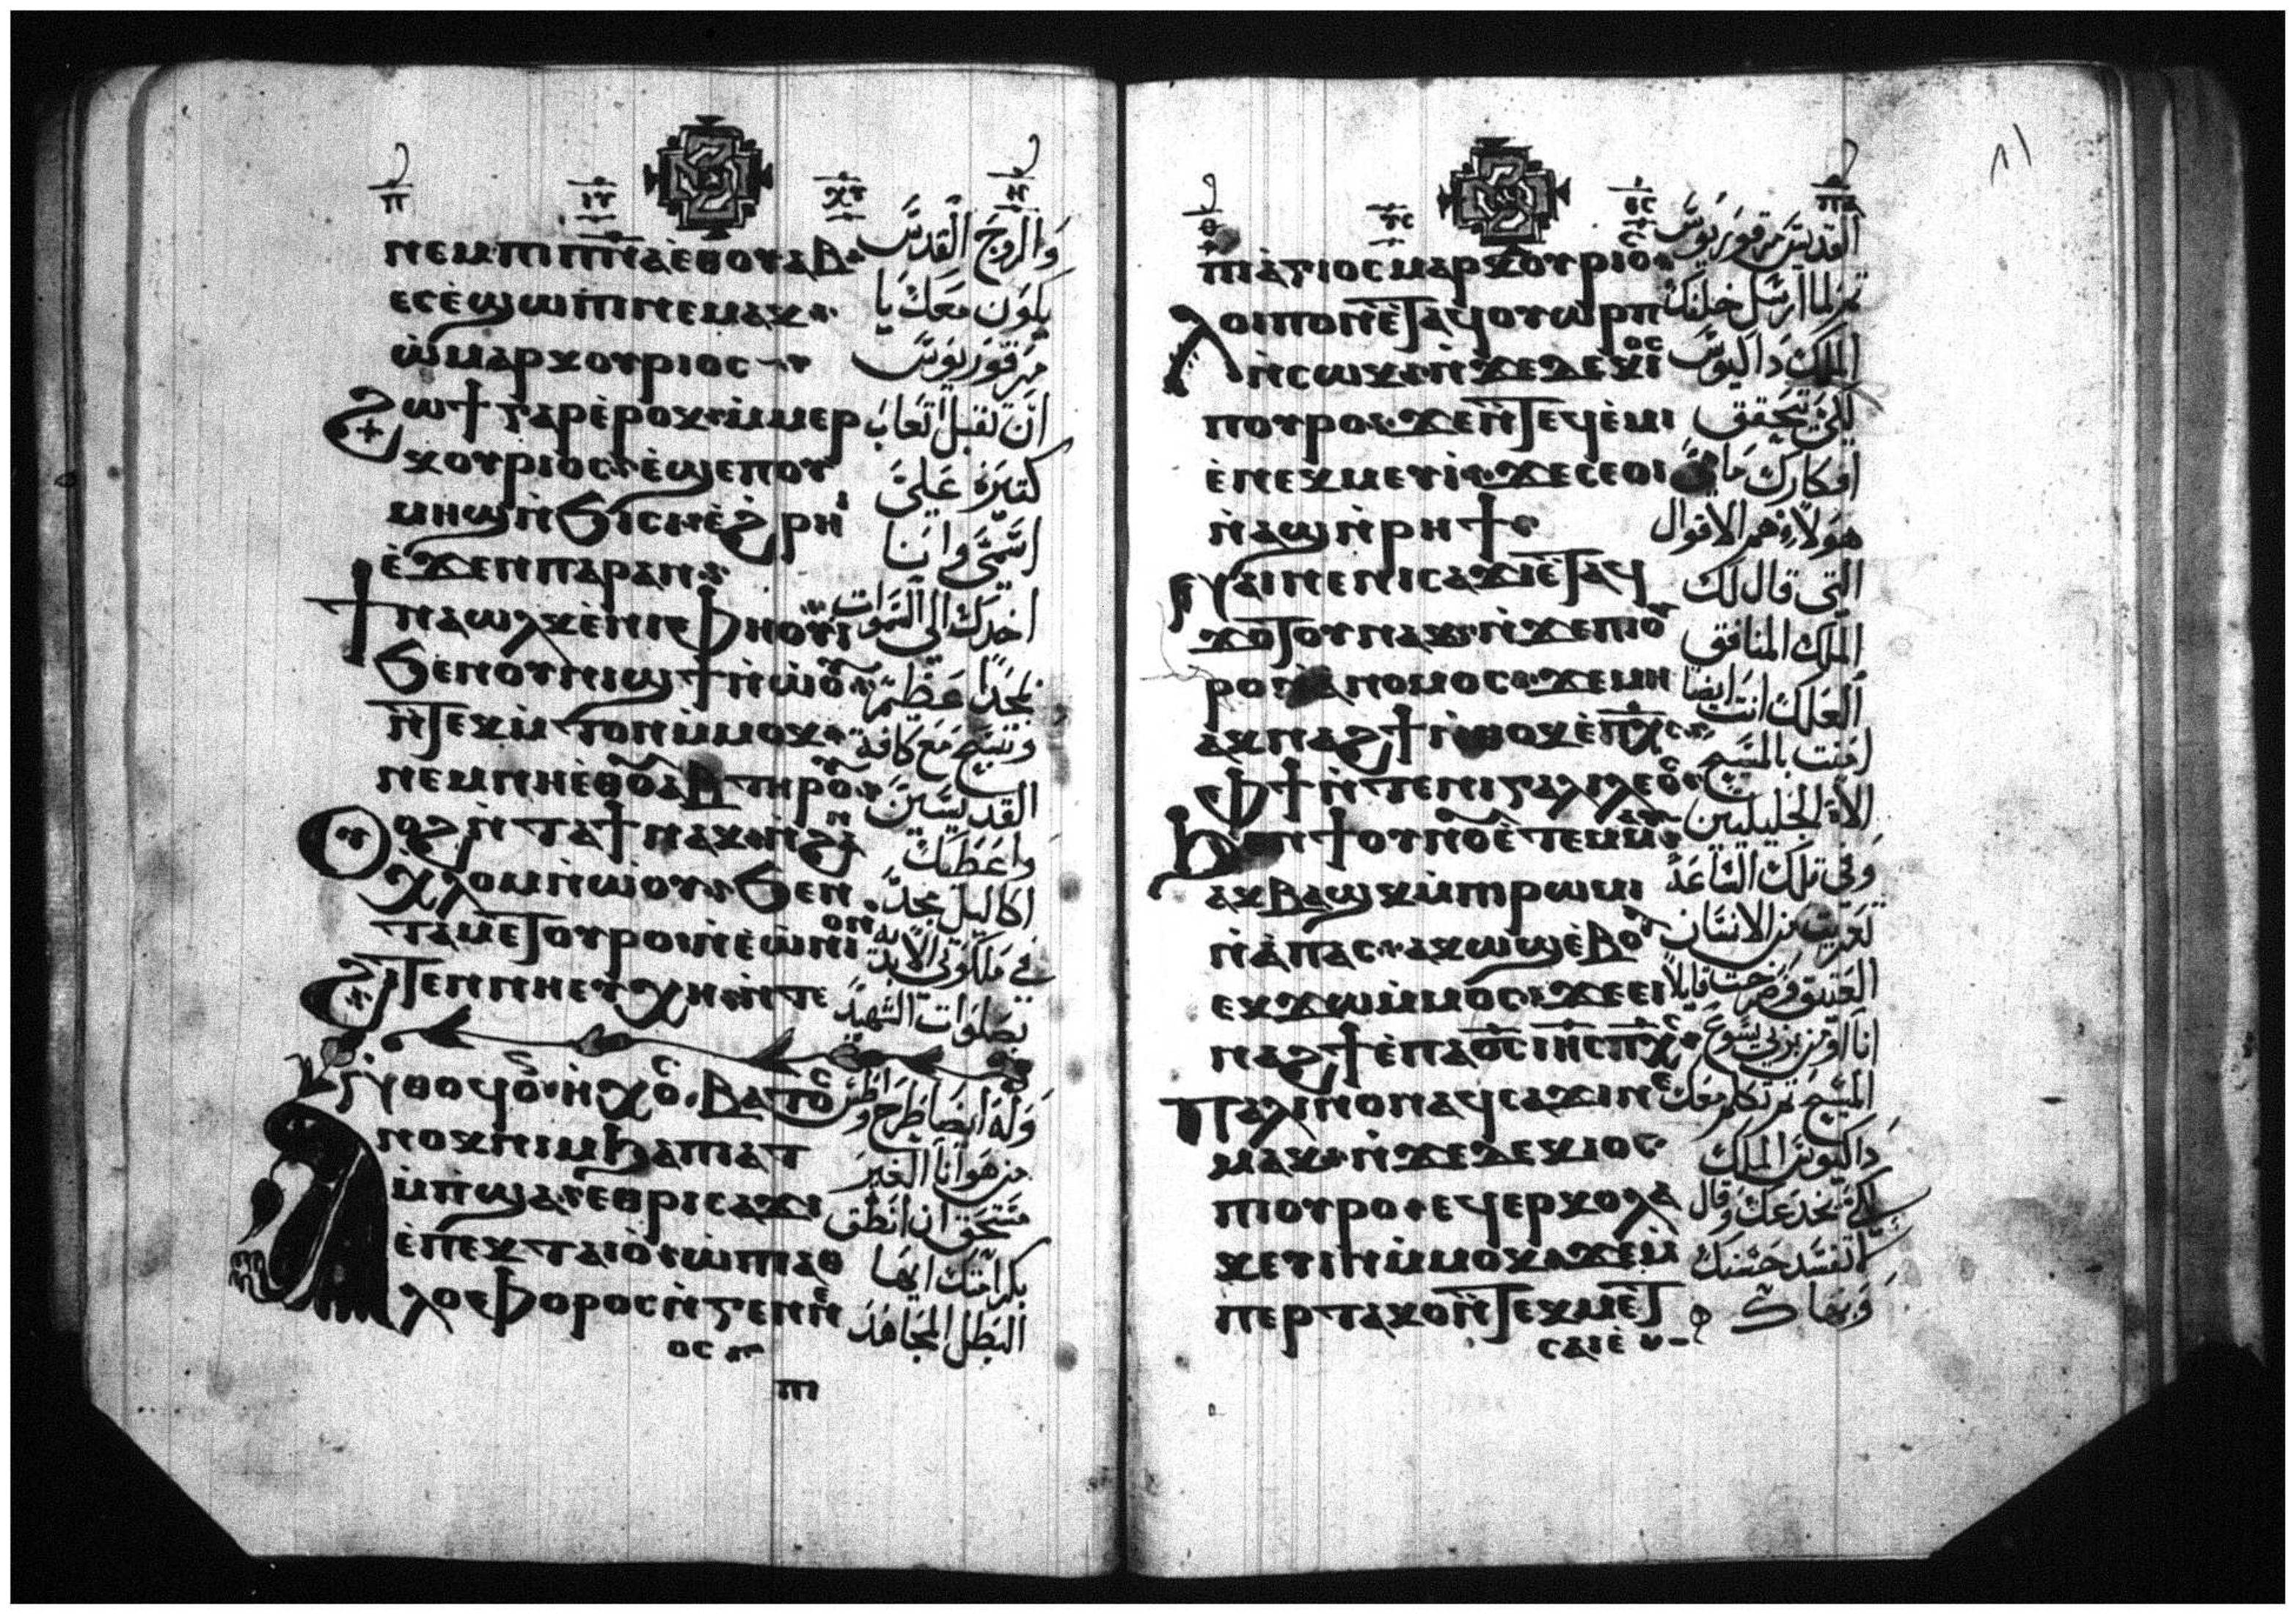 ⲛⲉⲙ ⲡⲓⲡⲛ̅ⲁ̅ ⲉ̀ⲑⲟⲩⲁⲃ
والروح القدس
ⲉⲥⲉ̀ϣⲱⲡⲓ ⲛⲉⲙⲁⲕ
يكون معك يا
ⲱ̀ ⲙⲁⲣⲕⲟⲩⲣⲓⲟⲥ
مرقوريوس
ϩⲱϯ ⲅⲁⲣ ⲉ̀ⲣⲟⲕ ⲙ̀ⲙⲉⲣ
ان تقبل اتعاب
ⲕⲟⲩⲣⲓⲟⲥ ⲉ̀ϣⲉⲡ ⲟⲩ
كثيرة على
ⲙⲏϣ ⲛ̀ϧⲓⲥⲓ ⲉ̀ϩⲣⲏⲓ
اسمي وانا
ⲉ̀ϫⲉⲛ ⲡⲁⲣⲁⲛ
ϯⲛⲁⲟⲗⲕ ⲉ̀ⲛⲓⲫⲏⲟⲩⲓ̀
اخدك الى السموات
ϧⲉⲛ ⲟⲩⲛⲓϣϯ ⲛ̀ⲱ̀ⲟⲩ
عظيم
ⲛ̀ⲧⲉⲕⲙ̀ⲧⲟⲛ ⲙ̀ⲙⲟⲕ
مع كافة
ⲛⲉⲙ ⲛⲏⲉ̀ⲑⲟⲩⲁⲃ ⲧⲏⲣⲟⲩ
القديسين
ⲟⲩⲟϩ ⲛ̀ⲧⲁϯ ⲛⲁⲕ ⲛ̀ϩⲁⲛ
واعطيك
ⲭⲗⲟⲙ ⲛ̀ⲱⲟⲩ ϧⲉⲛ
اكاليل مجد
ⲧⲁⲙⲉⲧⲟⲩⲣⲟ ⲛ̀ⲉ̀ⲱ̀ⲛⲓⲟⲛ
في ملكوتي الابدية
ϩⲓⲧⲉⲛ ⲛⲏⲉⲩⲭⲏ ⲛ̀ⲧⲉ
بصلوات الشهيد
وله ايضا طرح
ⲛⲟⲕ ⲛⲓⲙ ϧⲁ ⲡⲓⲁⲧ
من هو انا الغير
ⲙ̀ⲡϣⲁ ⲉⲑⲣⲓⲥⲁϫⲓ
مستحق ان انطق
ⲉ̀ⲡⲉⲕⲧⲁⲓⲟ̀ ⲱ̀ ⲡⲓⲁⲑ
بكرامتك ايها
ⲗⲟⲫⲟⲣⲟⲥ ⲛ̀ⲅⲉⲛⲛⲉ
البطل المجاهد
ⲟⲥ
ⲡⲓ
ⲡⲓⲁ̀ⲅⲓⲟⲥ ⲙⲁⲣⲕⲟⲩⲣⲓⲟⲥ
القديس مرقوريوس
ⲗⲟⲓⲡⲟⲛ ⲉ̀ⲧⲁϥⲟⲩⲱⲣⲡ
ثم لما ارسل خلفك
ⲛ̀ⲥⲱⲕ ⲛ̀ϫⲉ ⲇⲉⲕⲓⲟⲥ
الملك داكيوس
ⲡⲟⲩⲣⲟ ϫⲉ ⲛ̀ⲧⲉϥⲉ̀ⲙⲓ
لكي يحقق
ⲉ̀ⲛⲉⲕⲙⲉⲩⲓ̀ ϫⲉ ⲥⲉⲟⲓ
افكارك ما
ⲛ̀ⲁϣ ⲛ̀ⲣⲏϯ
هولاء هم الاقوال
ⲛⲁⲓ ⲛⲉ ⲛⲓⲥⲁϫⲓ ⲉ̀ⲧⲁϥ
التي قال لك
ϫⲟⲧⲟⲩ ⲛⲁⲕ ⲛ̀ϫⲉ ⲡⲓⲟⲩ
الملك المنافق
ⲣⲟ ⲛ̀ⲁ̀ⲛⲟⲙⲟⲥ ϫⲉ ⲙⲏ
العلك انت ايضا
ⲁⲕⲛⲁϩϯ ⲛ̀ⲑⲟⲕ ⲉ̀ⲡⲭ̅ⲥ̅
امنت بالمسيح
ⲫϯ ⲛ̀ⲧⲉ ⲛⲓⲅⲁⲗⲓⲗⲉⲟⲥ
الاه الجليليين
ϧⲉⲛ ϯⲟⲩⲛⲟⲩ ⲉ̀ⲧⲉⲙⲙⲁⲩ
وفي تلك الساعة
ⲁⲕⲃⲁϣⲕ ⲙ̀ⲡⲓⲣⲱⲙⲓ
تعريت من الانسان
ⲛ̀ⲁ̀ⲡⲁⲥ ⲁⲕⲱϣ ⲉ̀ⲃⲟⲗ
العتيق وصرخت قايلا
ⲉⲕϫⲱ ⲙ̀ⲙⲟⲥ ϫⲉ ⲉⲓ
انا اومن بربي يسوع
ⲛⲁϩϯ ⲉ̀ⲡⲁⲟ̅ⲥ̅ ⲓⲏ̅ⲥ̅ ⲡⲭ̅ⲥ̅
المسيح ثم تكلم معك
ⲡⲁⲗⲓⲛ ⲟⲛ ⲁϥⲥⲁϫⲓ ⲛⲉ
ⲙⲁⲕ ⲛ̀ϫⲉ ⲇⲉⲕⲓⲟⲥ
داكيوس الملك
ⲡⲓⲟⲩⲣⲟ ⲉϥⲉⲣⲭⲟⲗⲁ
لكي يخدعك وقال
ⲕⲉⲩⲓⲛ ⲙ̀ⲙⲟⲕ ϫⲉ ⲙ̀
لا تفسد حسنك
ⲡⲉⲣⲧⲁⲕⲟ ⲛ̀ⲧⲉⲕⲙⲉⲧ
وبهاك
ⲥⲁⲓⲉ̀